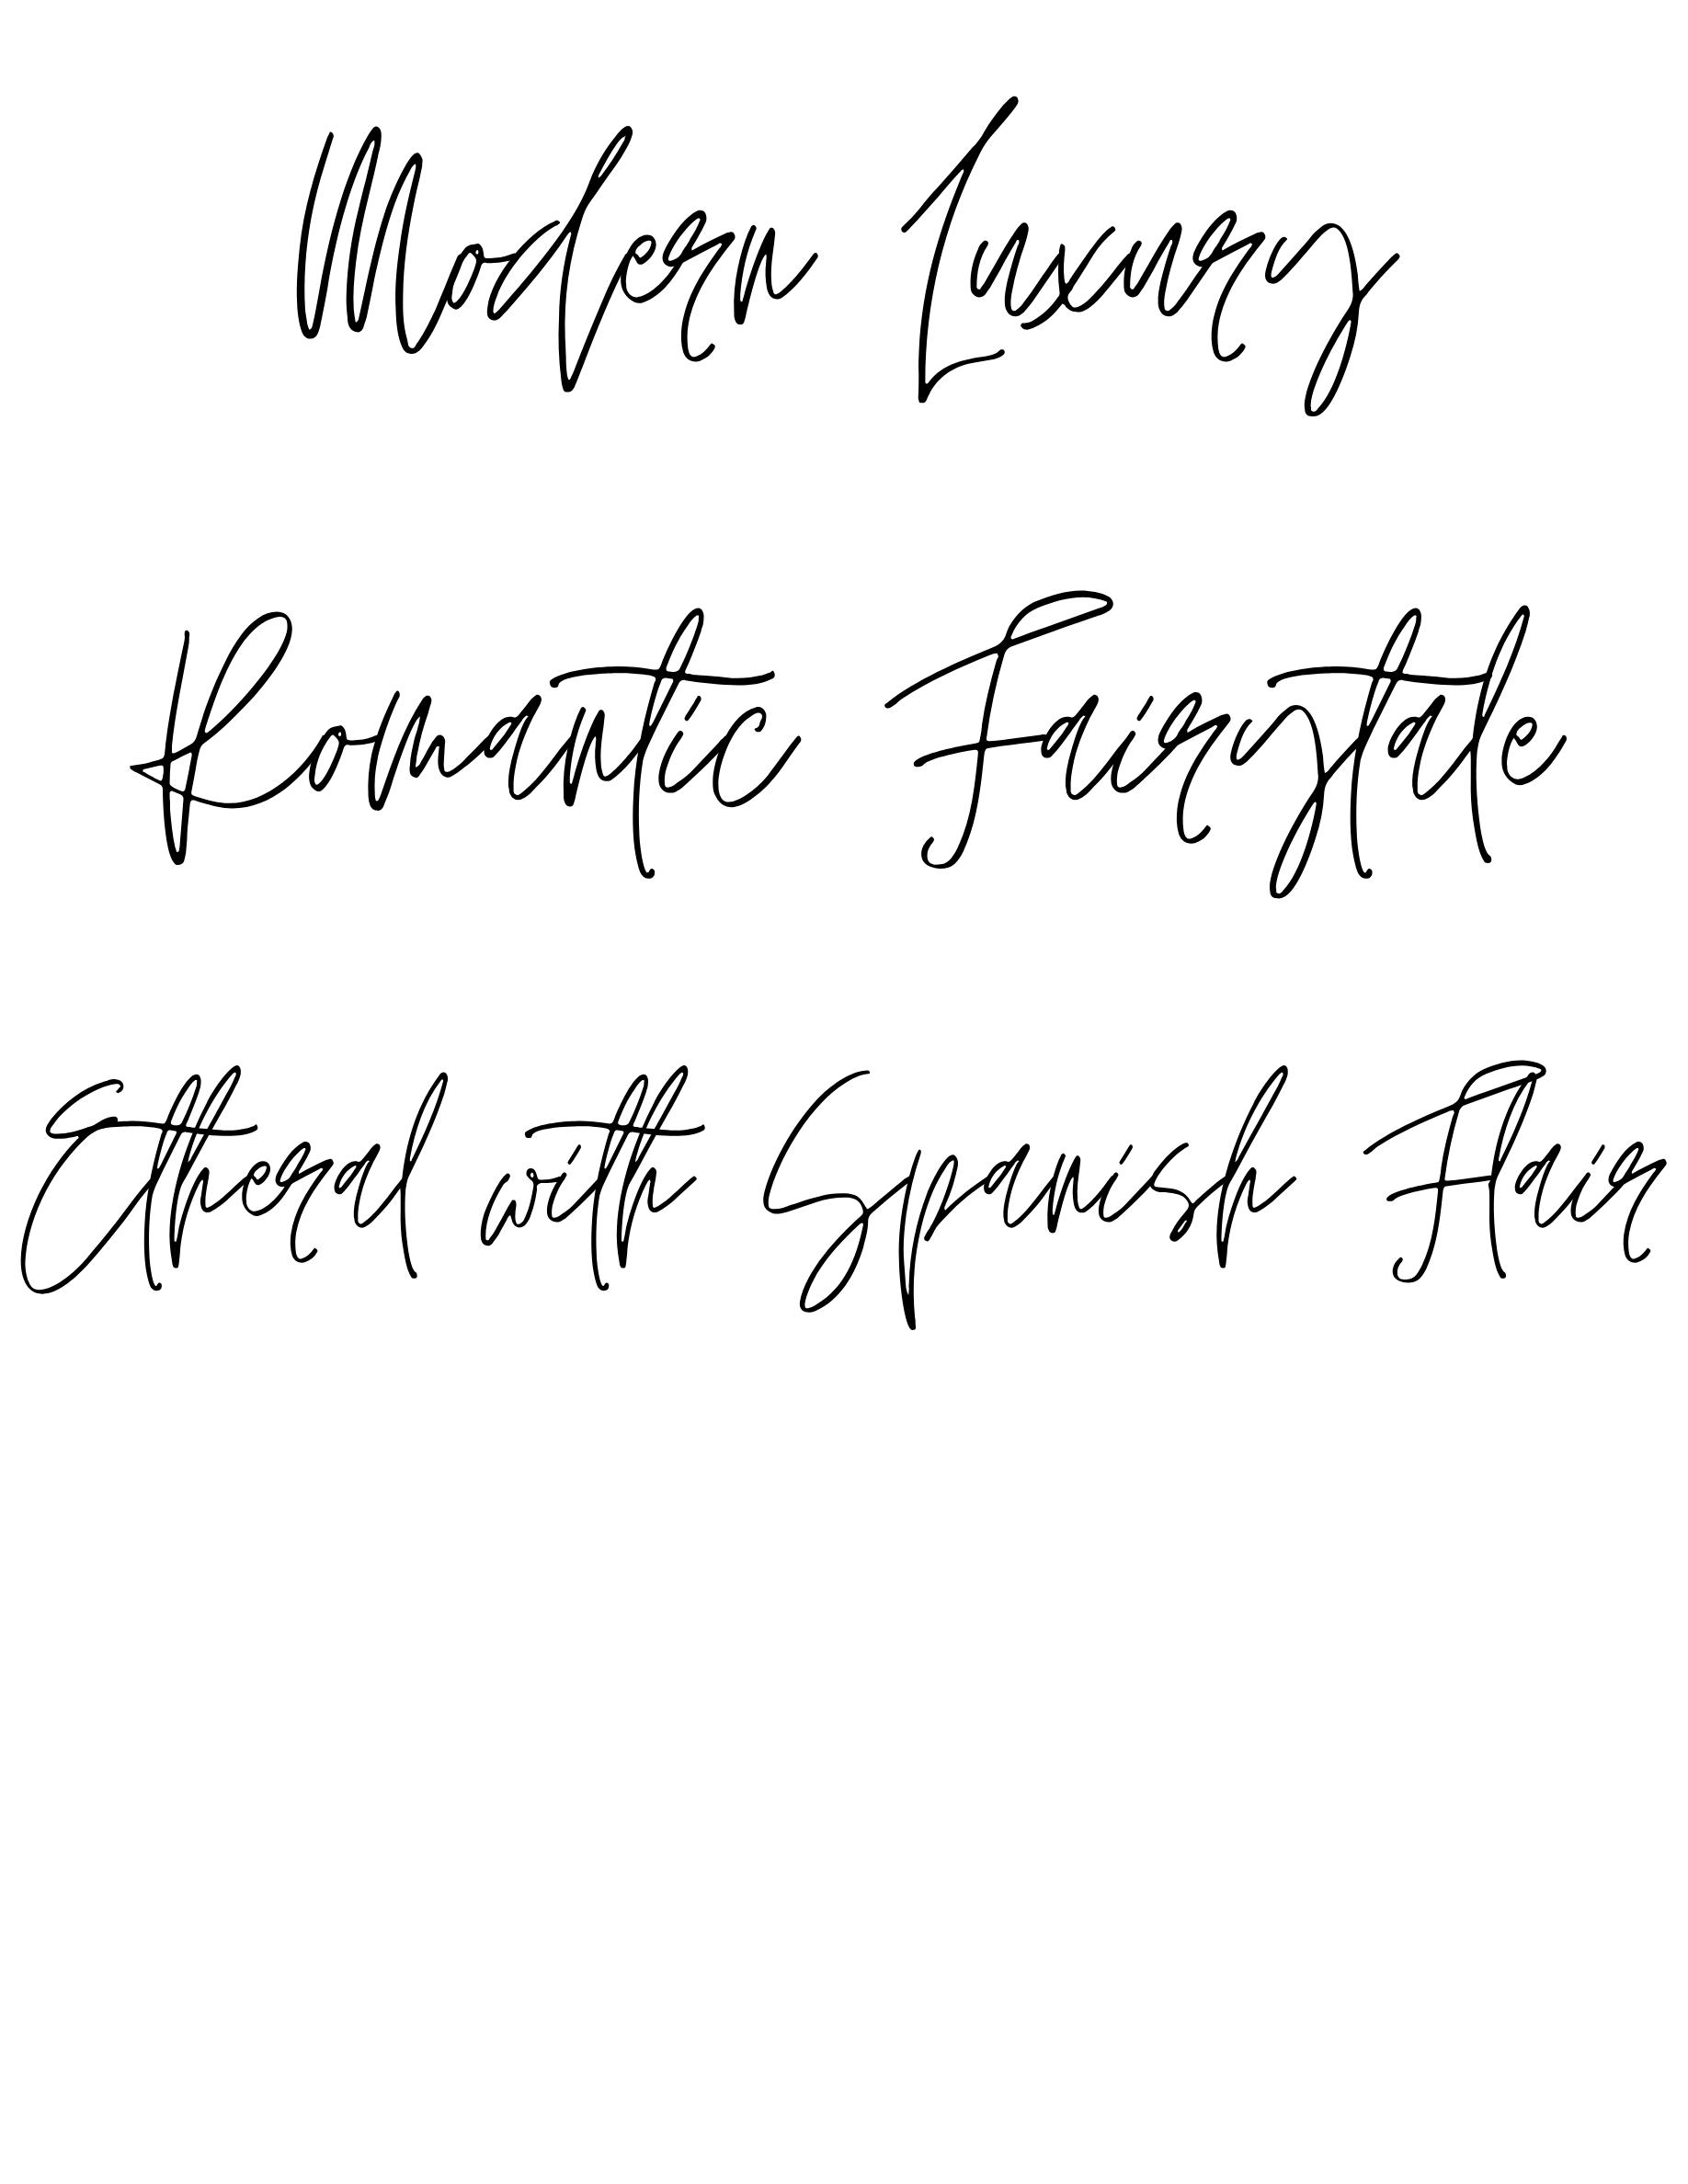 Modern Luxury
Romantic Fairytale
Etheral with Spanish Flair